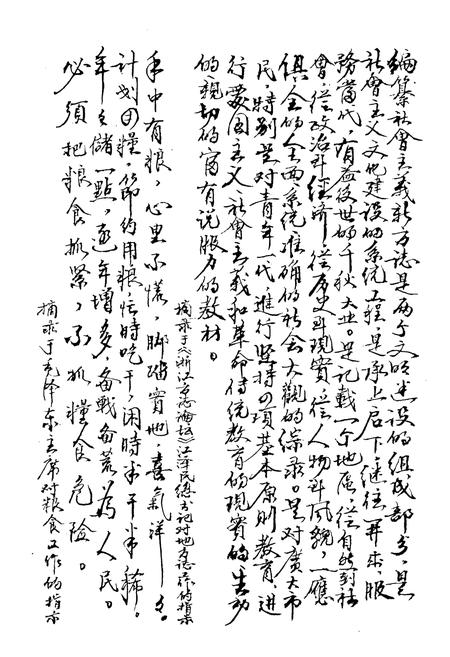 编纂社會主義新方誌是两个文明建设的组成部分，是
社會主义文化建设的系统工程，是承上启下，继往开来，服
務當代，有益後世的千秋大业。是记载一个地區，從自然到社
會，從政治到經济，從历史到现實，從人物到风貌，一應
俱全的全面系统准确的社会大觀的綜录。是对廣大市
民，特别是对青年一代，進行坚持四项基本原则教育，進
行爱國主义社會主義和革命传统教育的现實的生动
的親切的富有说服力的教材。
摘录于《浙江方志論坛》江泽民總书记对地方志工作的指示
手中有粮，心里不慌，脚踏實地，喜氣洋々。
计划用糧，節约用粮，忙時吃干，闲時半干半稀。
年々儲一點，逐年增多，备戰备荒，為人民。
必须把粮食抓緊，不抓糧食危险。
摘录于毛泽东主席对粮食工作的指示